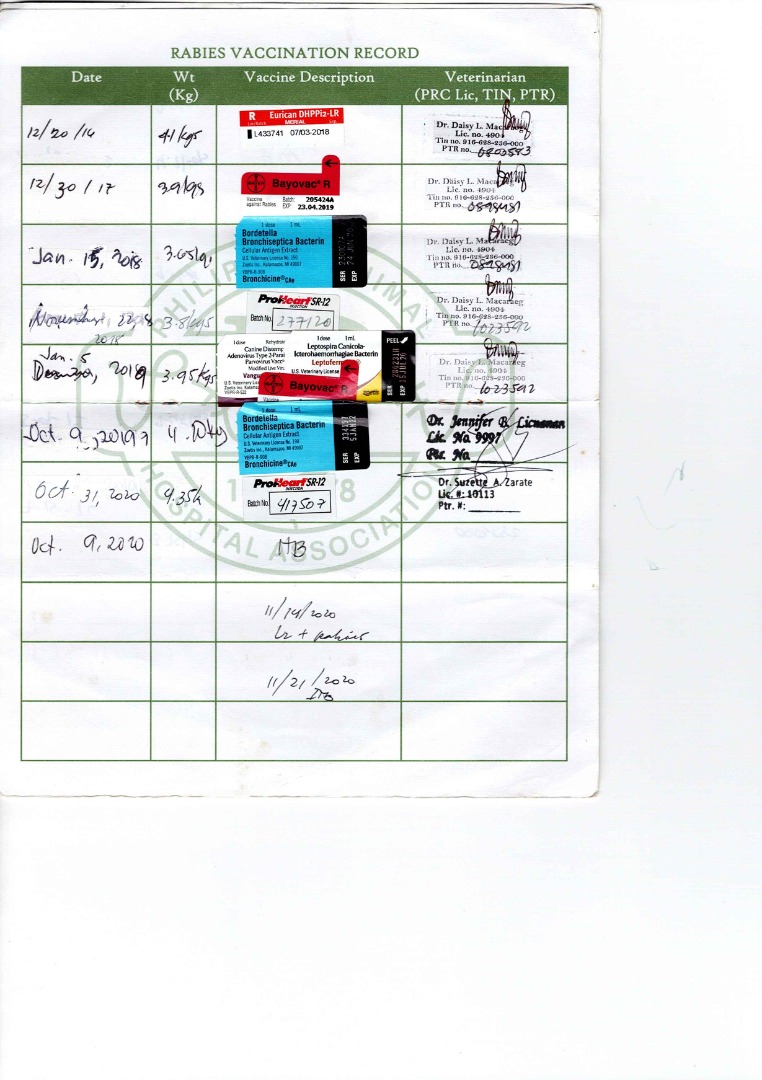 RABIES VACCINATION RECORD
Date Wt (Kg) Vaccine Description Veterinarian (PRC Lic, TIN, PTR)
12/20/16 4.1 kgs
R Eurican DHPPi2-LR
MERIAL
L433741 07/03/2018
Dr. Daisy L. Macaraeg
Lic. no. 4904
Tin no. 916-628-256-000
PTR no.
12/30/17
Bayovac® R
Vaccine against Rabies Batch: 205424A
EXP 23.04.2019
Dr. Daisy L. Macaraeg
Lic. no. 4904
Tin no. 916-628-256-000
PTR no.
Jan. 15, 2018
1 dose 1 mL
Bordetella
Bronchiseptica Bacterin
Cellular Antigen Extract
U.S. Veterinary License No. 190
Zoetis Inc., Kalamazoo, MI 49007
Bronchicine® CAe
SER
EXP
Dr. Daisy L. Macaraeg
Lic. no. 4904
Tin no. 916-628-256-000
PTR no.
November 22, 2018 3.8 kgs
ProHeart SR-12
INJECTION
Batch No. 277120
Dr. Daisy L. Macaraeg
Lic. no. 4904
Tin no. 916-628-256-000
PTR no. 1023592
Jan. 5
2019 3.95 kgs
1 dose
Canine Distemp
Adenovirus Type 2-Parai
Parvovirus Vacc
Modified Live Viru
Vangu
1 dose 1 mL
Leptospira Canicola-
Icterohaemorrhagiae Bacterin
Leptoferm
U.S. Veterinary License
PEEL
SER
EXP
Bayovac® R
Dr. Daisy L. Macaraeg
Lic. no. 4904
Tin no. 916-628-256-000
PTR no. 1023592
Oct. 9, 2019
1 mL
Bordetella
Bronchiseptica Bacterin
Cellular Antigen Extract
U.S. Veterinary License No. 190
Zoetis Inc., Kalamazoo, MI 49007
Bronchicine® CAe
SER
EXP
Dr. Jennifer B. Licmanan
Lic. No. 9997
Ptr. No.
Oct. 31, 2020
ProHeart SR-12
INJECTION
Batch No. 417507
Dr. Suzette A. Zarate
Lic. #: 10113
Ptr. #:
Oct. 9, 2020
11/14/2020
11/21/2020
HOSPITAL ASSOCIATION